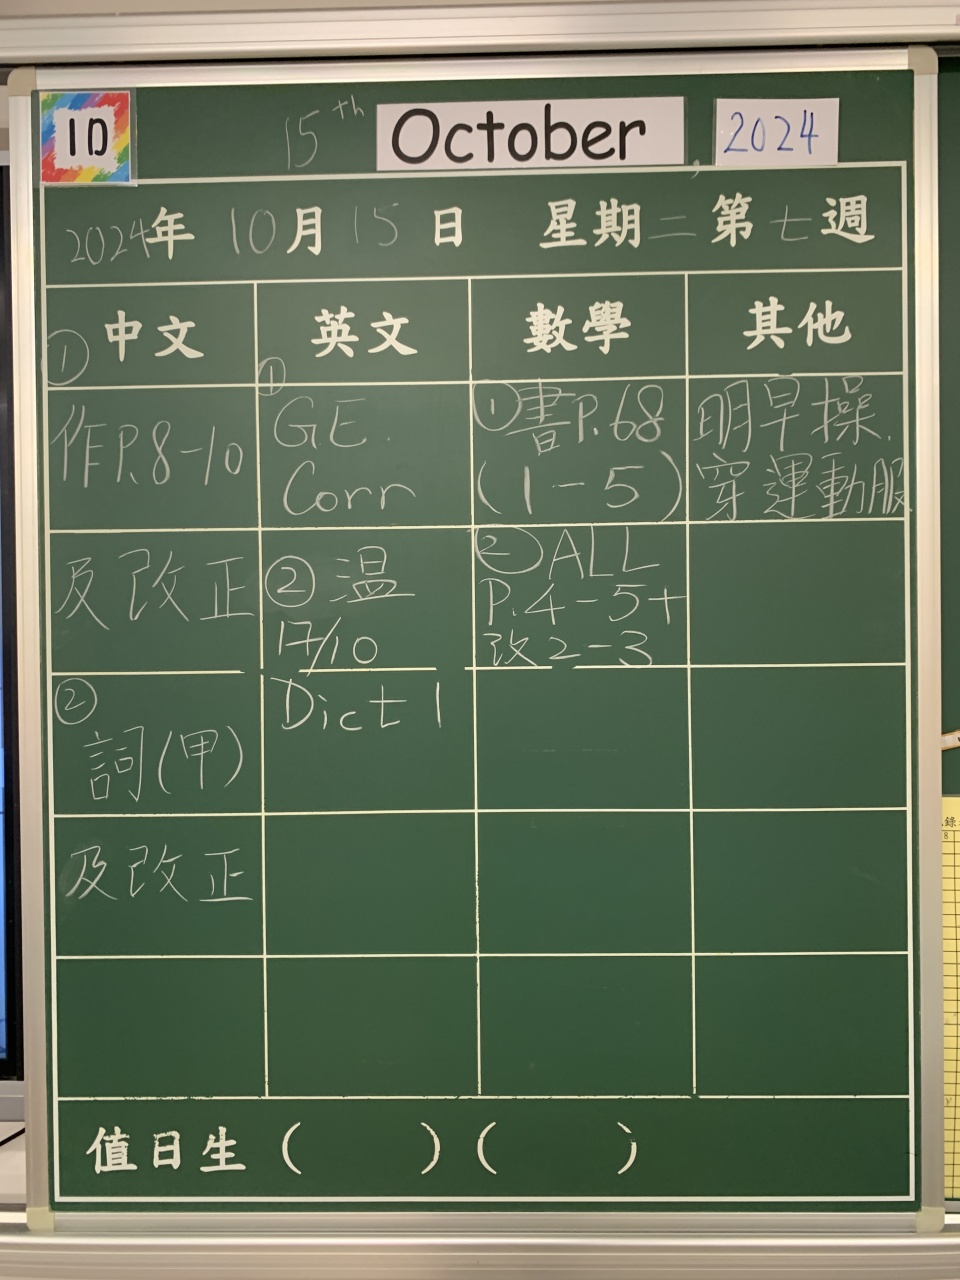 1D
15th October, 2024
2024年 10月 15日 星期二 第七週
中文 英文 數學 其他
①
作P.8-10
及改正
②
詞(甲)
及改正
①
GE.
Corr
② 温
17/10
Dict 1
①書P.68
(1-5)
②ALL
P.4-5+
改2-3
明早操.
穿運動服
值日生 ( ) ( )
錄
8